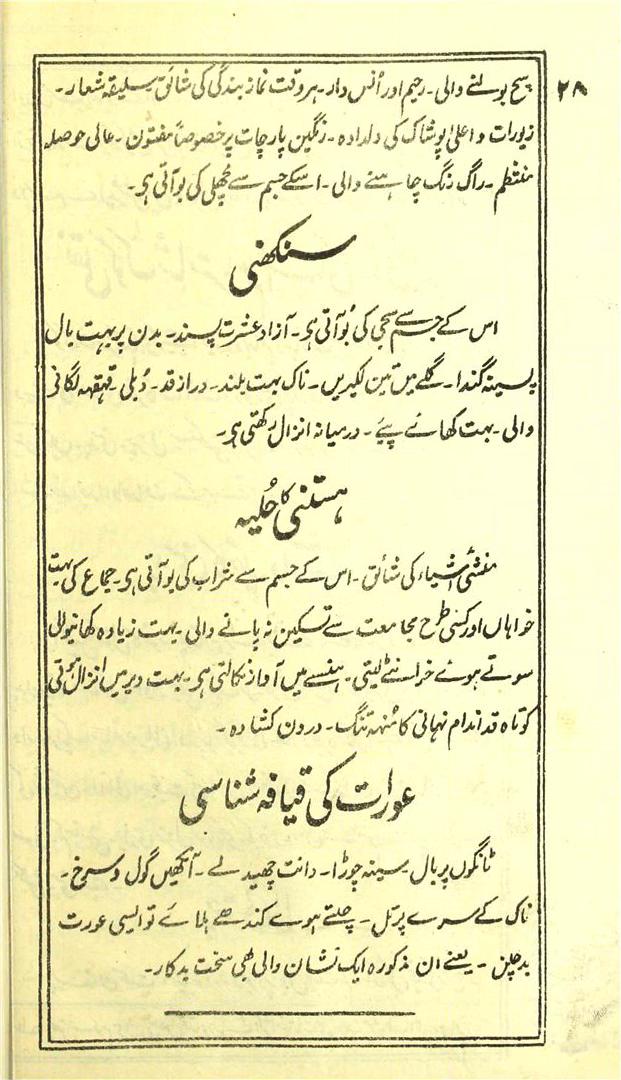 ۲۸
سچ بولنے والی۔ رحیم اور اُنس دار۔ ہر وقت نماز بندگی کی شائق سلیقہ شعار۔
زیورات و اعلیٰ پوشاک کی دلدادہ۔ رنگین پارچات پر خصوصاً مفتون۔ عالی حوصلہ
منتظم۔ راگ رنگ چاہنے والی۔ اسکے جسم سے مچھلی کی بُو آتی ہی۔
سنکھنی
اس کے جسم سے سجی کی بُو آتی ہی۔ آزاد عشرت پسند۔ بدن پر بہت بال
پسینہ گندا۔ گلے میں تین لکیریں۔ ناک بہت بلند۔ دراز قد۔ دُبلی قہقہہ لگانی
والی۔ بہت کھائے پیئے۔ درمیانہ انزال رکھتی ہی۔
ہستنی کا حُلیہ
منشّی اشیاء کی شائق۔ اس کے جسم سے شراب کی بُو آتی ہی۔ جماع کی بہت
خواہاں اور کسی طرح مجامعت سے تسکین نہ پانے والی۔ بہت زیادہ کھانیوالی
سوتے ہوئے خراٹے لیتی۔ ہنسے میں آواز نکالتی ہی۔ بہت دیر میں انزال ہوتی
کوتاہ قد اندام نہانی کا مُنہہ تنگ۔ درون کشادہ۔
عورات کی قیافہ شناسی
ٹانگوں پر بال۔ سینہ چوڑا۔ دانت چھیدلے۔ آنکھیں گول و سرخ۔
ناک کے سرے پر تل۔ چلتے ہوے کندھے ہلائے تو ایسی عورت
بدچلن۔ یعنے ان مذکورہ ایک نشان والی بھی سخت بدکار۔